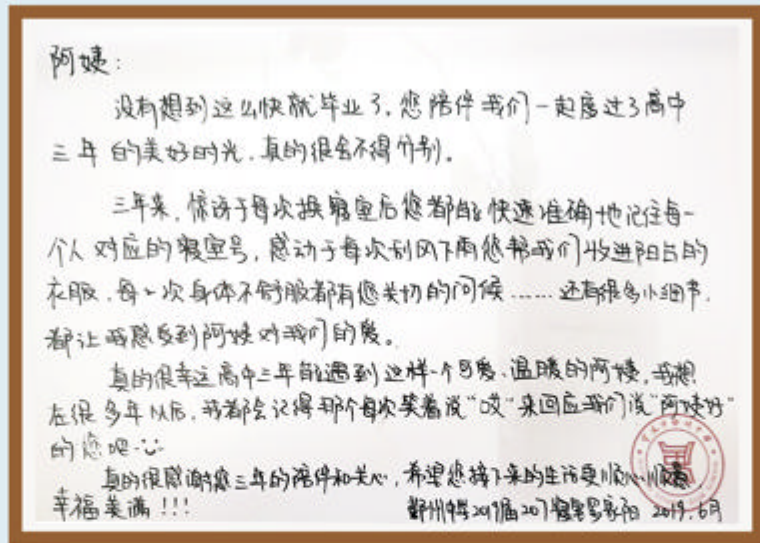 阿姨:
没有想到这么快就毕业了,您陪伴我们一起度过了高中
三年的美好时光,真的很舍不得分别。
三年来,惊讶于每次换寝室后您都能快速准确地记住每一
个人对应的寝室号,感动于每次刮风下雨您帮我们收进阳台的
衣服,每一次身体不舒服都有您关切的问候……还有很多小细节,
都让我感受到阿姨对我们的爱。
真的很幸运高中三年能遇到这样一个可爱、温暖的阿姨,我想
在很多年以后,我都会记得那个每次笑着说“哎”来回应我们说“阿姨好”
的您吧
真的很感谢您三年的陪伴和关心,希望您接下来的生活更顺心顺意,
幸福美满!!!
鄞州中学2019届207寝室 2019.6月